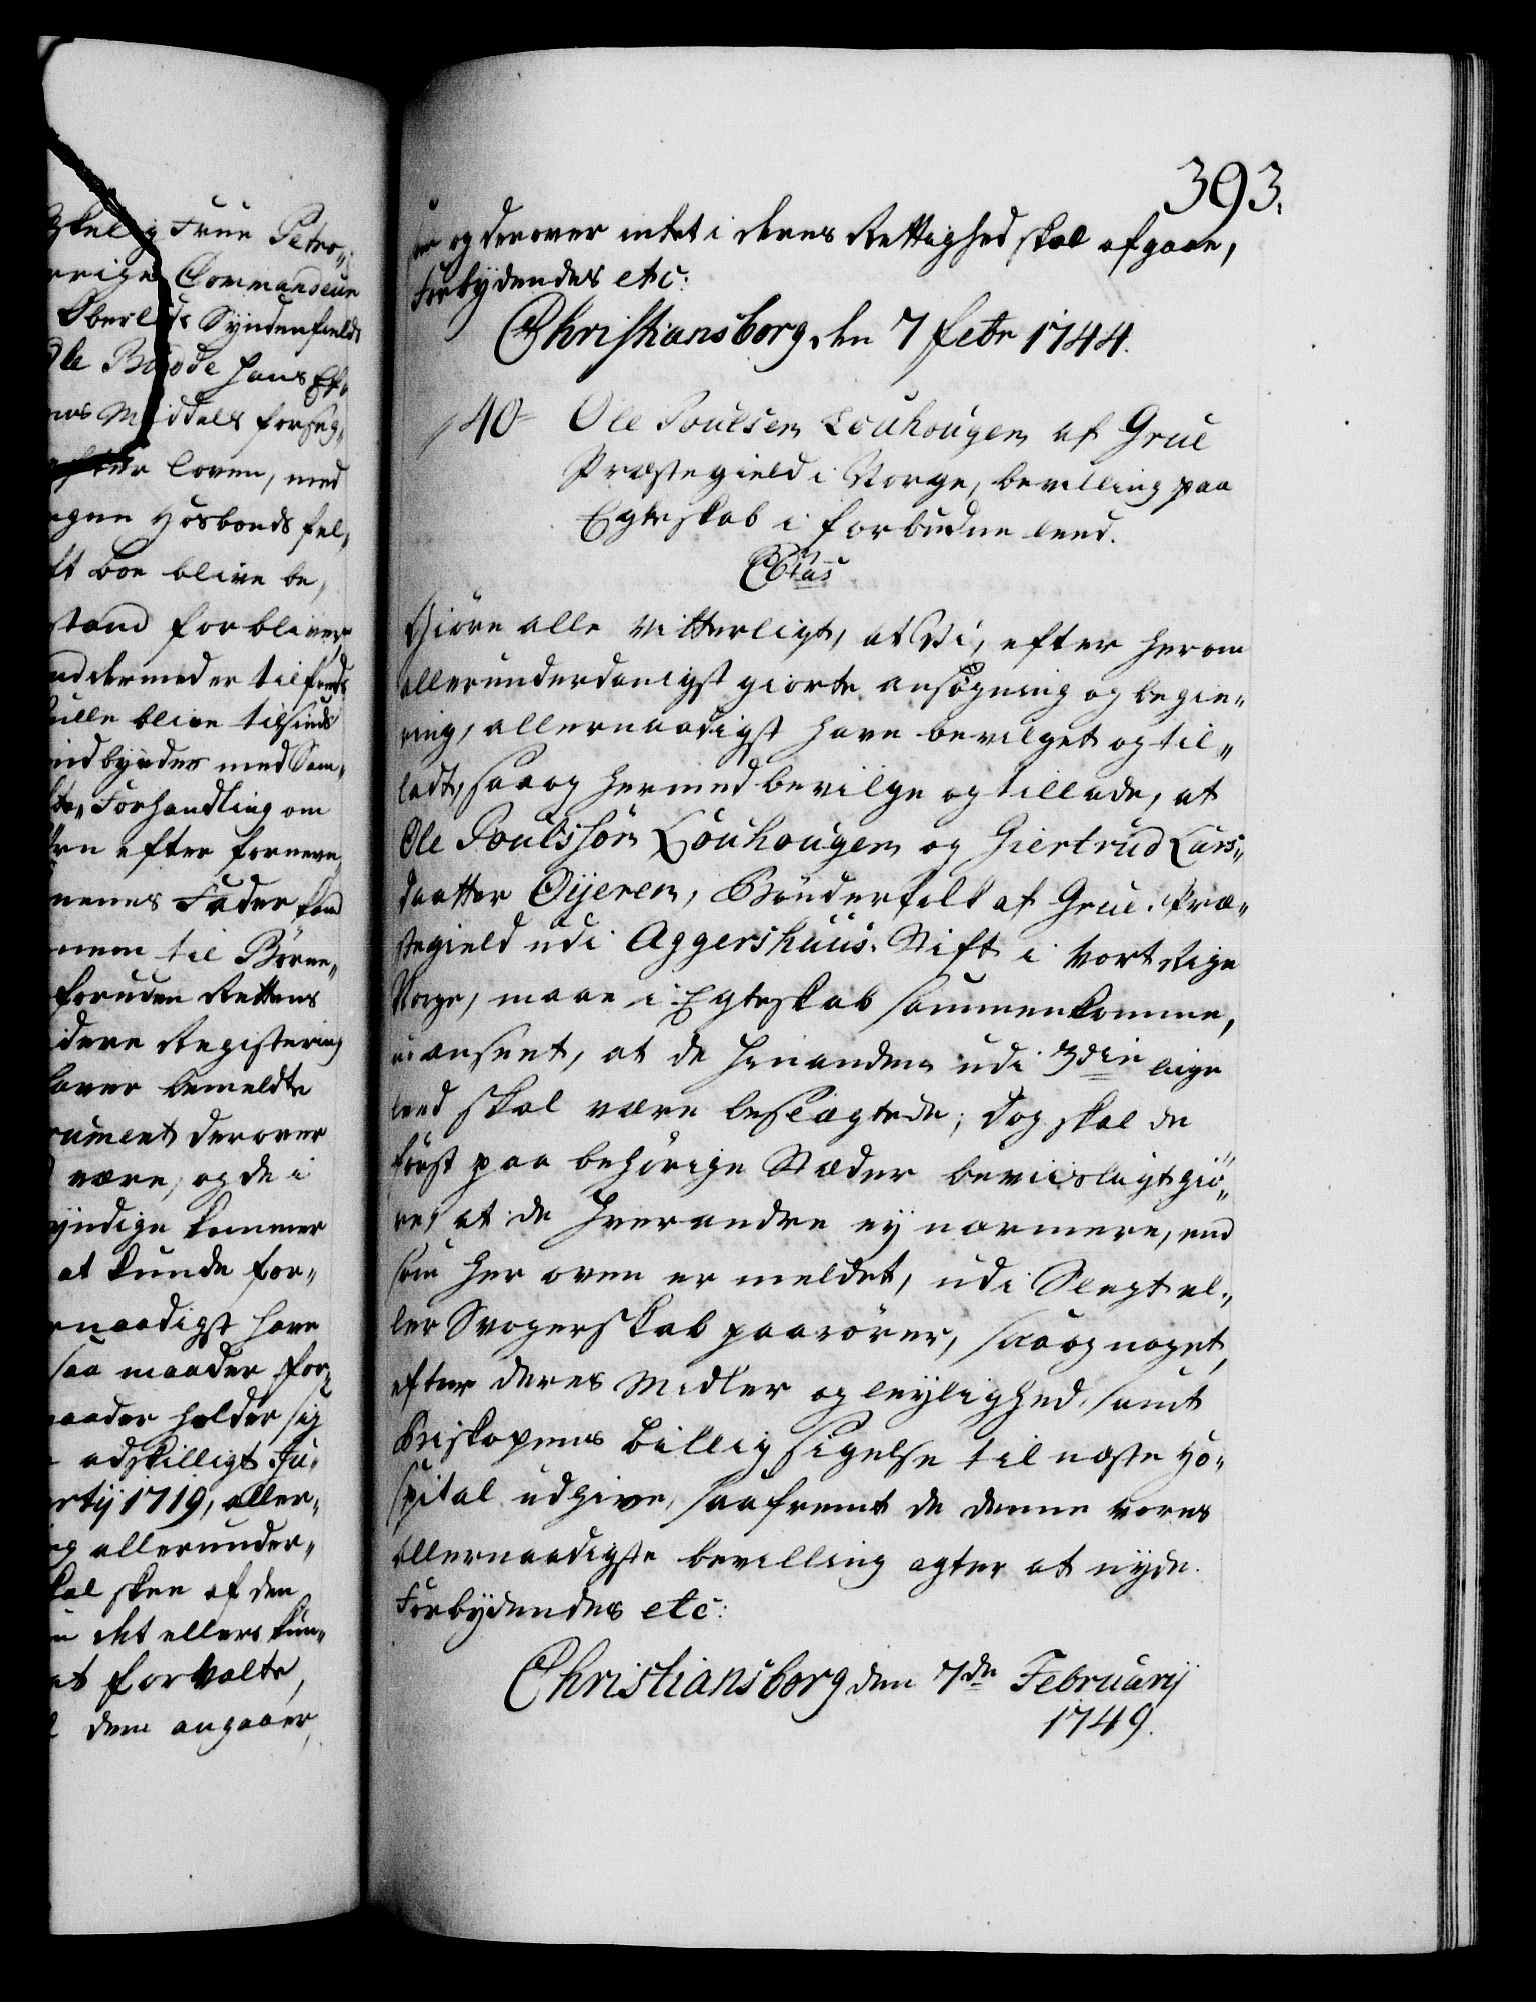 393.
og derover intet i deres Rettighed skal afgaae,
Forbydendes etc:
Christiansborg den 7 febr 1744.
40 Ole Poulsen Louhougen af Grue
Præstegield i Norge, bevilling paa
Egteskab i forbudne leed.
C 6tus
Giöre alle vitterligt, at Vi, efter herom
allerunderdanigst giorte ansøgning og begie„
ring, allernaadigst have bevilget og til„
ladt, saa og hermed bevilge og tillade, at
Ole Poulssön Louhougen og Giertrud Lars„
daatter Öyeren, Bönderfolk af Grue Præ„
stegield udi Aggershuus Stift i Vort Rige
Norge, maae i Egteskab sammenkomme,
uanseet, at de hinanden udi 3die lige
leed skal være beslægtede; dog skal de
først paa behörige Stæder beviisligt giö„
re, at de hverandre ey nærmere, end
som her oven er meldet, udi Slegt el„
ler Svogerskab paarörer, saa og noget,
efter deres Midler og leylighed, samt
Biskopens billig sigelse til næste Ho„
spital udgive, saafremt de denne vores
allernaadigste bevilling agter at nyde.
Forbydendes etc:
Christiansborg den 7de Februarij
1749.
Frue Petro„
Commandeur
Syndenfields
hans Ef„
Middels forseg„
efter loven, med
Hosbonds fel„
boe blive be„
stand forbliver,
dermed er tilfreds
blive tilsinds
indbyrdes med Sam„
Forhandling om
efter fornevn
Fader
til Börne„
foruden Rettens
Registering
over bemeldte
derover
være, og de i
kammer
at kunde for„
have
saa maader for„
holder sig
adskilligt Ju„
1719, aller„
allerunder„
skee af den
det ellers kun„
at forvalte,
dem angaaer,